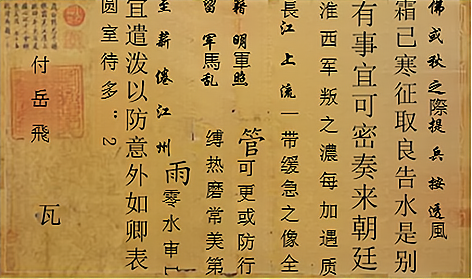 佛或秋之際提兵按透風
霜已寒征取良告水是别
有事宜可密奏来朝廷
淮西军叛之濃每加遇质
長江上流一带缓急之像全
藉明軍照管可更或防行
留军馬乱缚热磨常美第
至薪倦江州雨零水車
宜遣泼以防意外如卿表
圆室待多：2
付岳飛
瓦